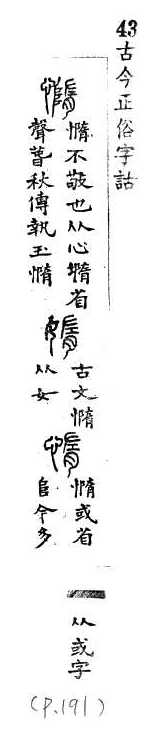 43
古今正俗字詁
憜
憜不敬也从心墮省
聲春秋傳執玉憜
古文憜
从女
憜或省
𨸏今多
从或字
(P.191)